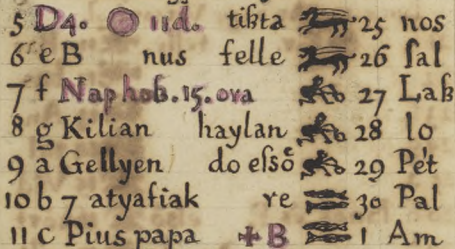 5 D4. 11d. tißta 25 nos
6 e B nus felle 26 ſal
7 f Nap hob. 15. ora 27 Laß
8 g Kilian haylan 28 lo
9 a Gellyen do első 29 Pét
10 b 7 atyafiak re 30 Pal
11 c Pius papa + B 1 Am